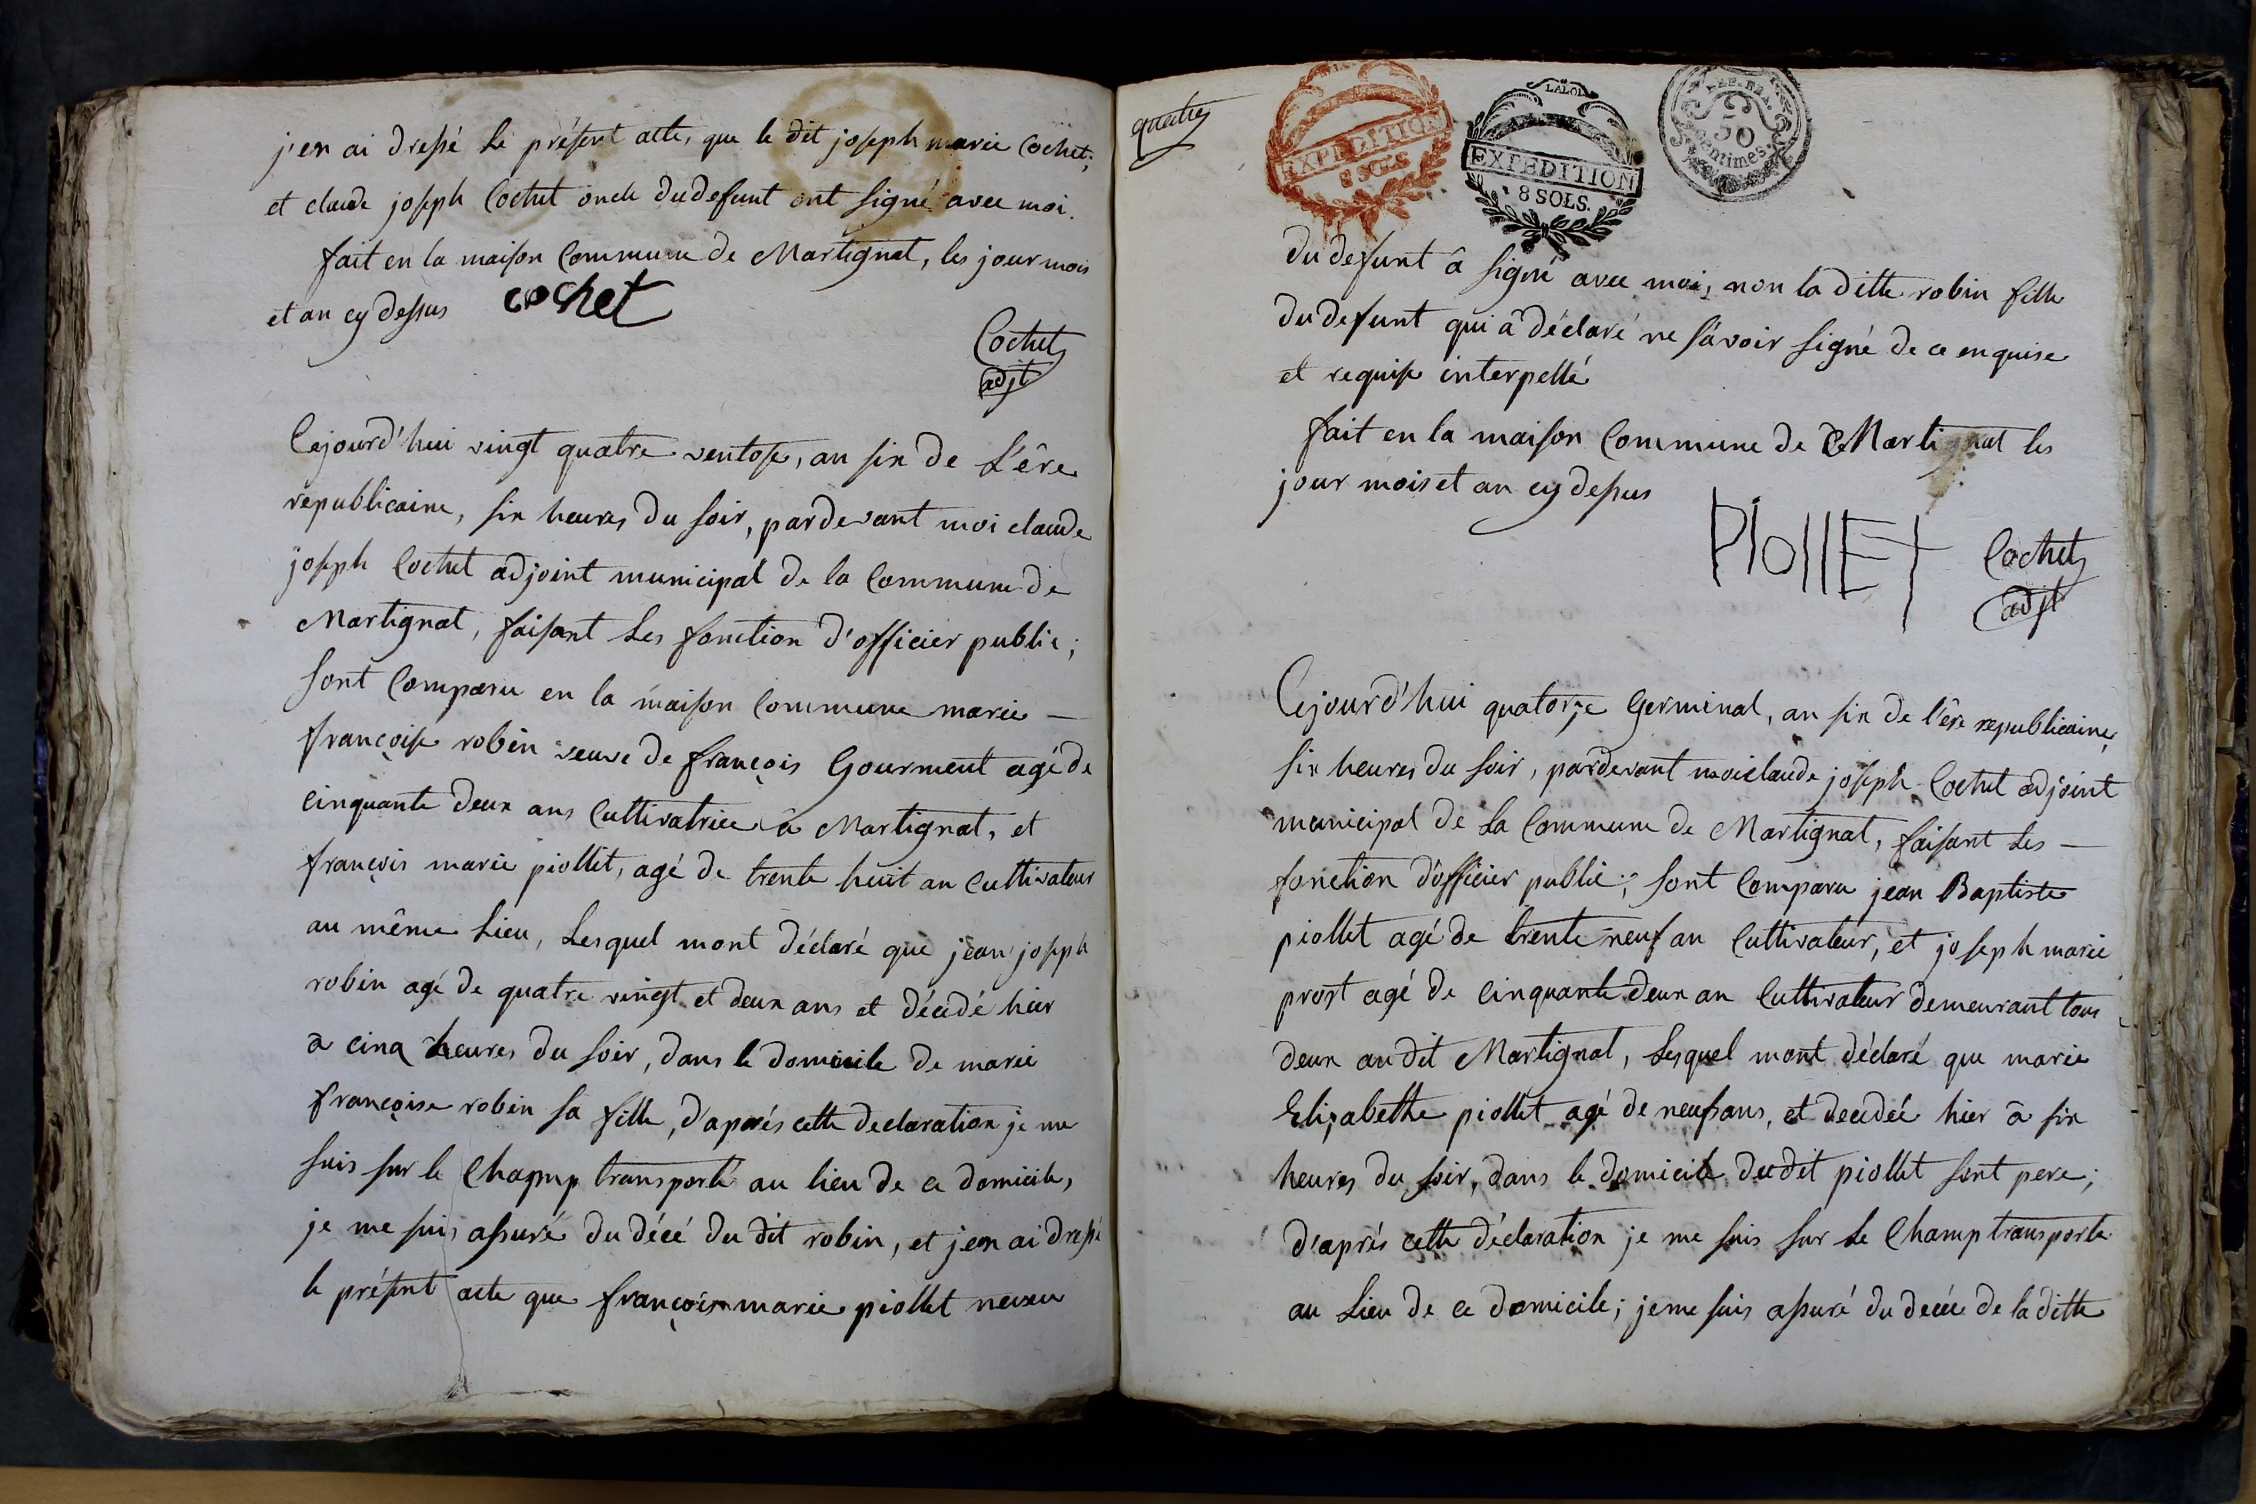 j'en ai dressé le présent acte, que le dit joseph marie Cochet,
et claude joseph Cochet oncle du defunt ont signé avec moi.
fait en la maison Commune de Martignat, les jour mois
et an cy dessus cochet
Cochet
adjt
Cejourd'hui vingt quatre ventose, an six de L'êre
republicaine, six heures du soir, pardevant moi claude
joseph Cochet adjoint municipal de la Commune de
Martignat, faisant Les fonction d'officier public;
sont Comparu en la maison Commune marie —
françoise robin veuve de françois Gourment agé de
cinquante deux ans Cultivatrice â Martignat, et
françois marie piollet, agé de trente huit an Cultivateur
au même Lieu, Lesquel mont déclaré que jean joseph
robin agé de quatre vingt et deux ans et décédé hier
a cinq heures du soir, dans le domicile de marie
françoise robin sa fille, d'aprés cette declaration je me
suis sur le Chapmp transporté au lieu de ce domicile,
je me suis assuré du décé du dit robin, et j'en ai dressé
le présent acte que françois marie piollet neveu
quatre
EXPEDITION
8 SOLS
LA LOI
EXPEDITION
8 SOLS.
REP. FRA.
50
Centimes.
du defunt â signé avec moi, non la ditte robin fille
du defunt qui â déclaré ne sâvoir signé de ce enquise
et requise interpellé
fait en la maison Commune de Martignat les
jour mois et an cy dessus
PIOllET
Cochet
adjt
Cejourd'hui quatorze Germinal, an six de l'êre republicaine,
six heures du soir, pardevant moi claude joseph Cochet adjoint
municipal de La Commune de Martignat, faisant Les —
fonction d'officier public; sont Comparu jean Baptiste
piollet agé de trente neuf an Cultivateur, et joseph marie
prost agé de cinquante deux an Cultivateur demeurant tous
deux au dit Martignat, Lesquel mont déclaré que marie
Elizabethe piollet agé de neufs ans, et decedée hier â six
heures du soir, dans le domicile du dit piollet sont pere;
d'aprés cette déclaration je me suis sur Le Champ transporte
au Lieu de ce domicile; je me suis assuré du decée de la ditte